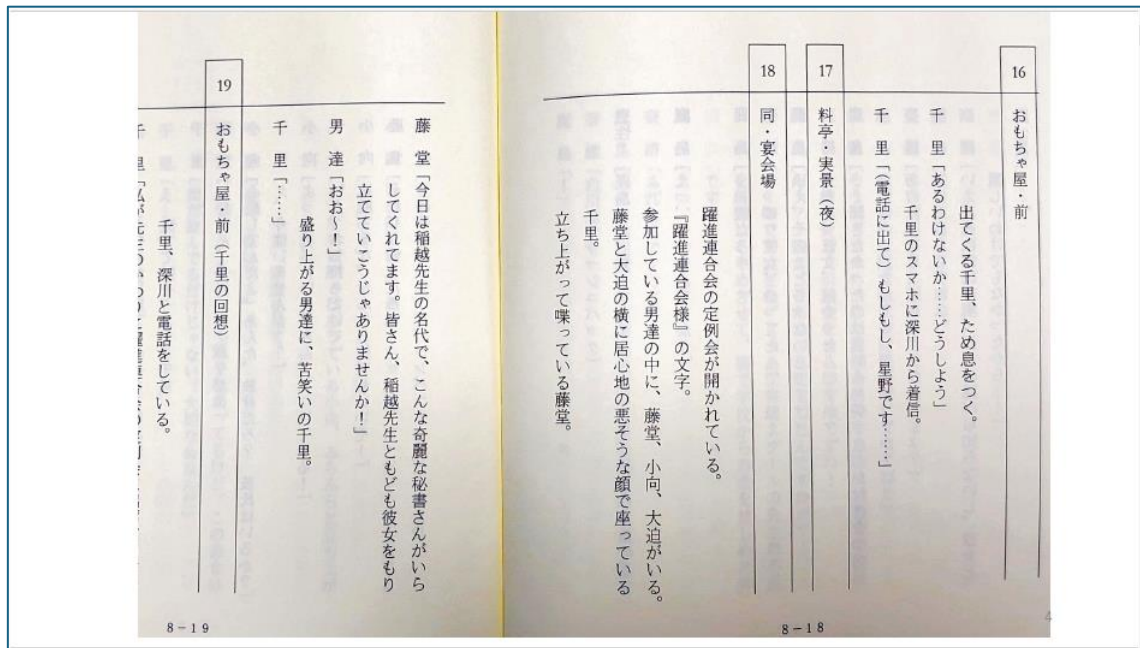 16
おもちゃ屋・前
出てくる千里、ため息をつく。
千 里「あるわけないか……どうしよう」
千里のスマホに深川から着信。
千 里「(電話に出て)もしもし、星野です……」
17
料亭・実景(夜)
18
同・宴会場
躍進連合会の定例会が開かれている。
『躍進連合会様』の文字。
参加している男達の中に、藤堂、小向、大迫がいる。
藤堂と大迫の横に居心地の悪そうな顔で座っている
千里。
立ち上がって喋っている藤堂。
8-18
藤 堂「今日は稲越先生の名代で、こんな奇麗な秘書さんがいら
してくれてます。皆さん、稲越先生ともども彼女をもり
立てていこうじゃありませんか!」
男 達「おお〜!」
盛り上がる男達に、苦笑いの千里。
千 里「……」
19
おもちゃ屋・前(千里の回想)
千里、深川と電話をしている。
千 里「私が
8-19
4